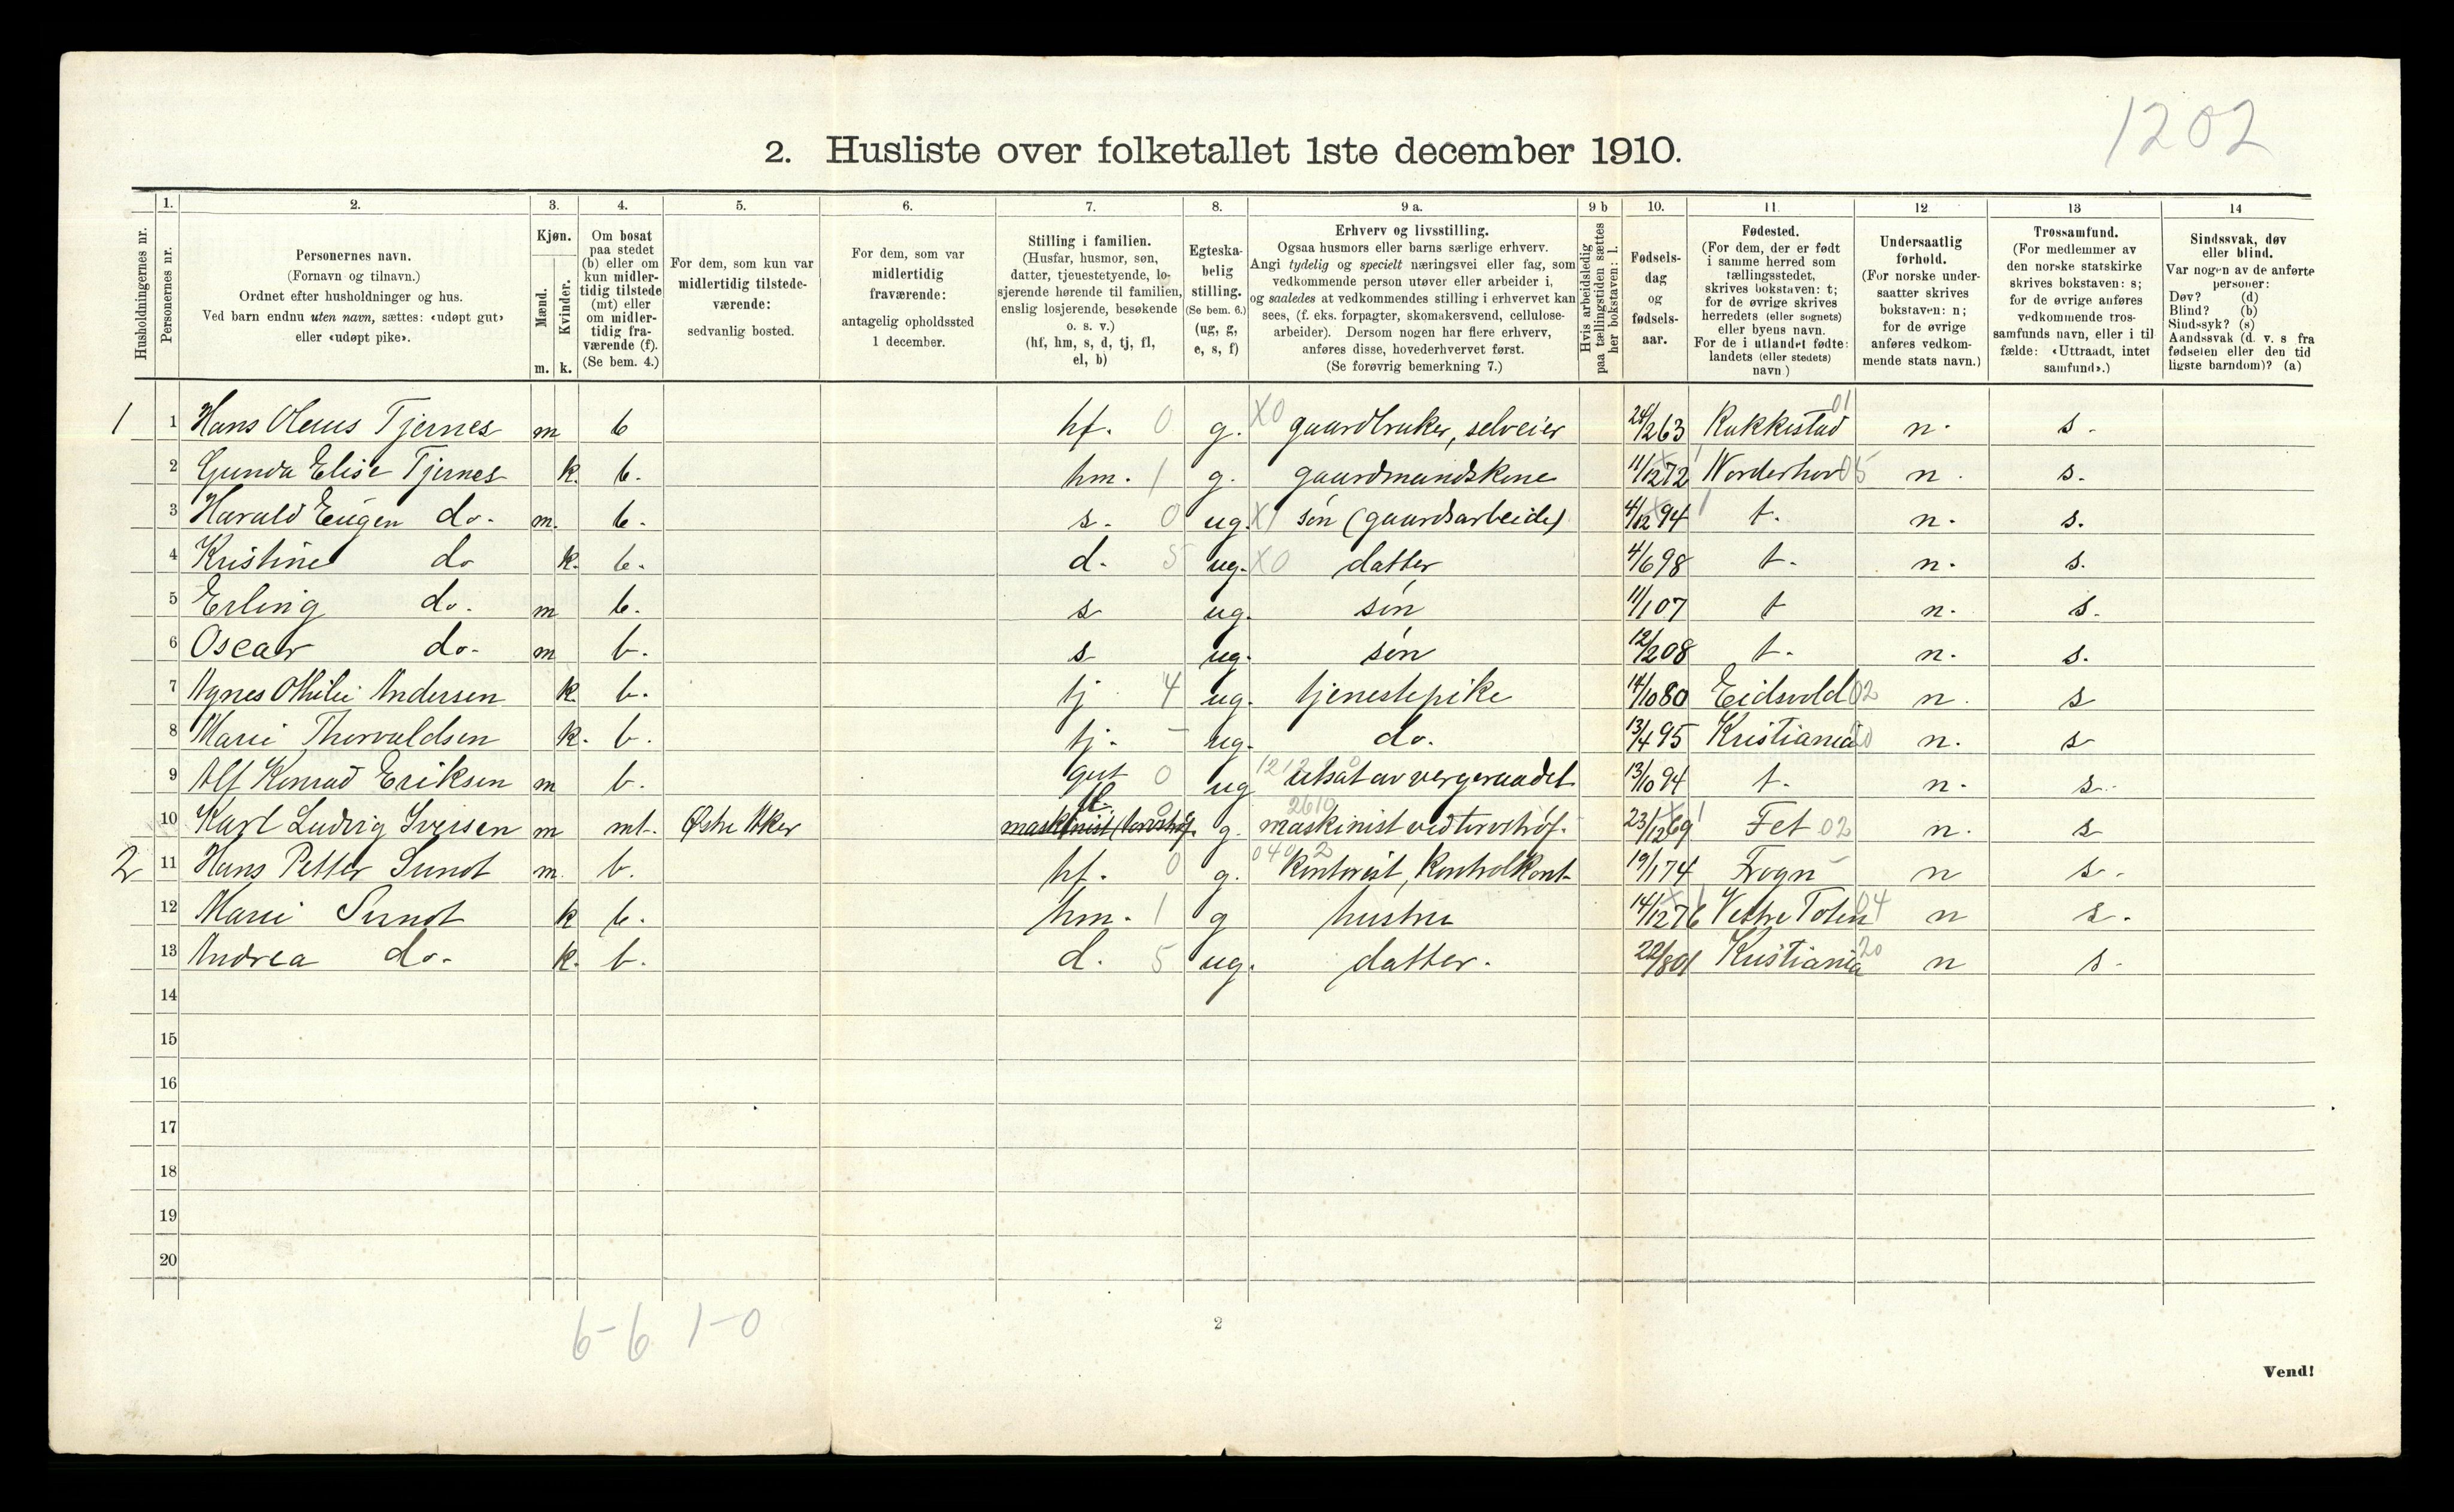 1202
2. Husliste over folketallet 1ste december 1910.
Husholdningernes nr.
1. Personernes nr.
2. Personernes navn.
(Fornavn og tilnavn.)
Ordnet efter husholdninger og hus.
Ved barn endnu uten navn, sættes: «udøpt gut»
eller «udøpt pike».
3. Kjøn.
Mænd. Kvinder.
m. k.
4. Om bosat
paa stedet
(b) eller om
kun midler-
tidig tilstede
(mt) eller
om midler-
tidig fra-
værende (f).
(Se bem. 4.)
5. For dem, som kun var
midlertidig tilstede-
værende:
sedvanlig bosted.
6. For dem, som var
midlertidig
fraværende:
antagelig opholdssted
1 december.
7. Stilling i familien.
(Husfar, husmor, søn,
datter, tjenestetyende, lo-
sjerende hørende til familien,
enslig losjerende, besøkende
o. s. v.)
(hf, hm, s, d, tj, fl,
el, b)
8. Egteska-
belig
stilling.
(Se bem. 6.)
(ug, g,
e, s, f)
9 a. Erhverv og livsstilling.
Ogsaa husmors eller barns særlige erhverv.
Angi tydelig og specielt næringsvei eller fag, som
vedkommende person utøver eller arbeider i,
og saaledes at vedkommendes stilling i erhvervet kan
sees, (f. eks. forpagter, skomakersvend, cellulose-
arbeider). Dersom nogen har flere erhverv,
anføres disse, hovederhvervet først.
(Se forøvrig bemerkning 7.)
9 b Hvis arbeidsledig
paa tællingstiden sættes
her bokstaven: l.
10. Fødsels-
dag
og
fødsels-
aar.
11. Fødested.
(For dem, der er født
i samme herred som
tællingsstedet,
skrives bokstaven: t;
for de øvrige skrives
herredets (eller sognets)
eller byens navn.
For de i utlandet fødte:
landets (eller stedets)
navn)
12 Undersaatlig
forhold.
(For norske under-
saatter skrives
bokstaven: n;
for de øvrige
anføres vedkom-
mende stats navn.)
13 Trossamfund.
(For medlemmer av
den norske statskirke
skrives bokstaven: s;
for de øvrige anføres
vedkommende tros-
samfunds navn, eller i til
fælde: «Uttraadt, intet
samfund».)
14 Sindssvak, døv
eller blind.
Var nogen av de anførte
personer:
Døv? (d)
Blind? (b)
Sindssyk? (s)
Aandssvak (d. v. s fra
fødselen eller den tid
ligste barndom)? (a)
1 1 Hans Olaus Tjernes m b hf. 0 g. X0 gaardbruker, selveier 24/2 63 Rakkestad 01 n. s.
2 Gunda Elise Tjernes k. b. hm. 1 g. gaardmandskone 11/12 72 Norderhov 05 n. s.
3 Harald Eugen do. m. b. s. 0 ug. X1 søn (gaardsarbeide) 4/12 94 t. n. s.
4 Kristine do k. b. d. 5 ug. X0 datter 4/6 98 t. n. s.
5 Erling do. m b. s ug. søn 11/1 07 t n. s.
6 Oscar do. m b. s ug. søn 12/2 08 t. n. s.
7 Agnes Othilie Andersen k. b. tj 4 ug. tjenestepike 14/10 80 Eidsvold 02 n. s
8 Marie Thorvaldsen k. b. tj. - ug. do. 13/4 95 Kristiania n. s
9 Alf Konrad Eriksen m b. gut 0 ug utsat av vergeraadet 13/10 94 t. n. s.
10 Karl Ludvig Iversen m mt. Østre Aker fl g. 2610 maskinist ved torvstrøf. 23/12 69 Fet 02 n. s
2 11 Hans Petter Sundt m. b. hf. 0 g. kontorist, Kontrolkont 19/1 74 Frogn n s.
12 Marie Sundt k b. hm. 1 g hustru 14/12 76 Vestre Toten 04 n s.
13 Andrea do. k. b. d. 5 ug. datter. 22/8 01 Kristiania 20 n s.
14
15
16
17
18
19
20
6-6 1-0
2
Vend!